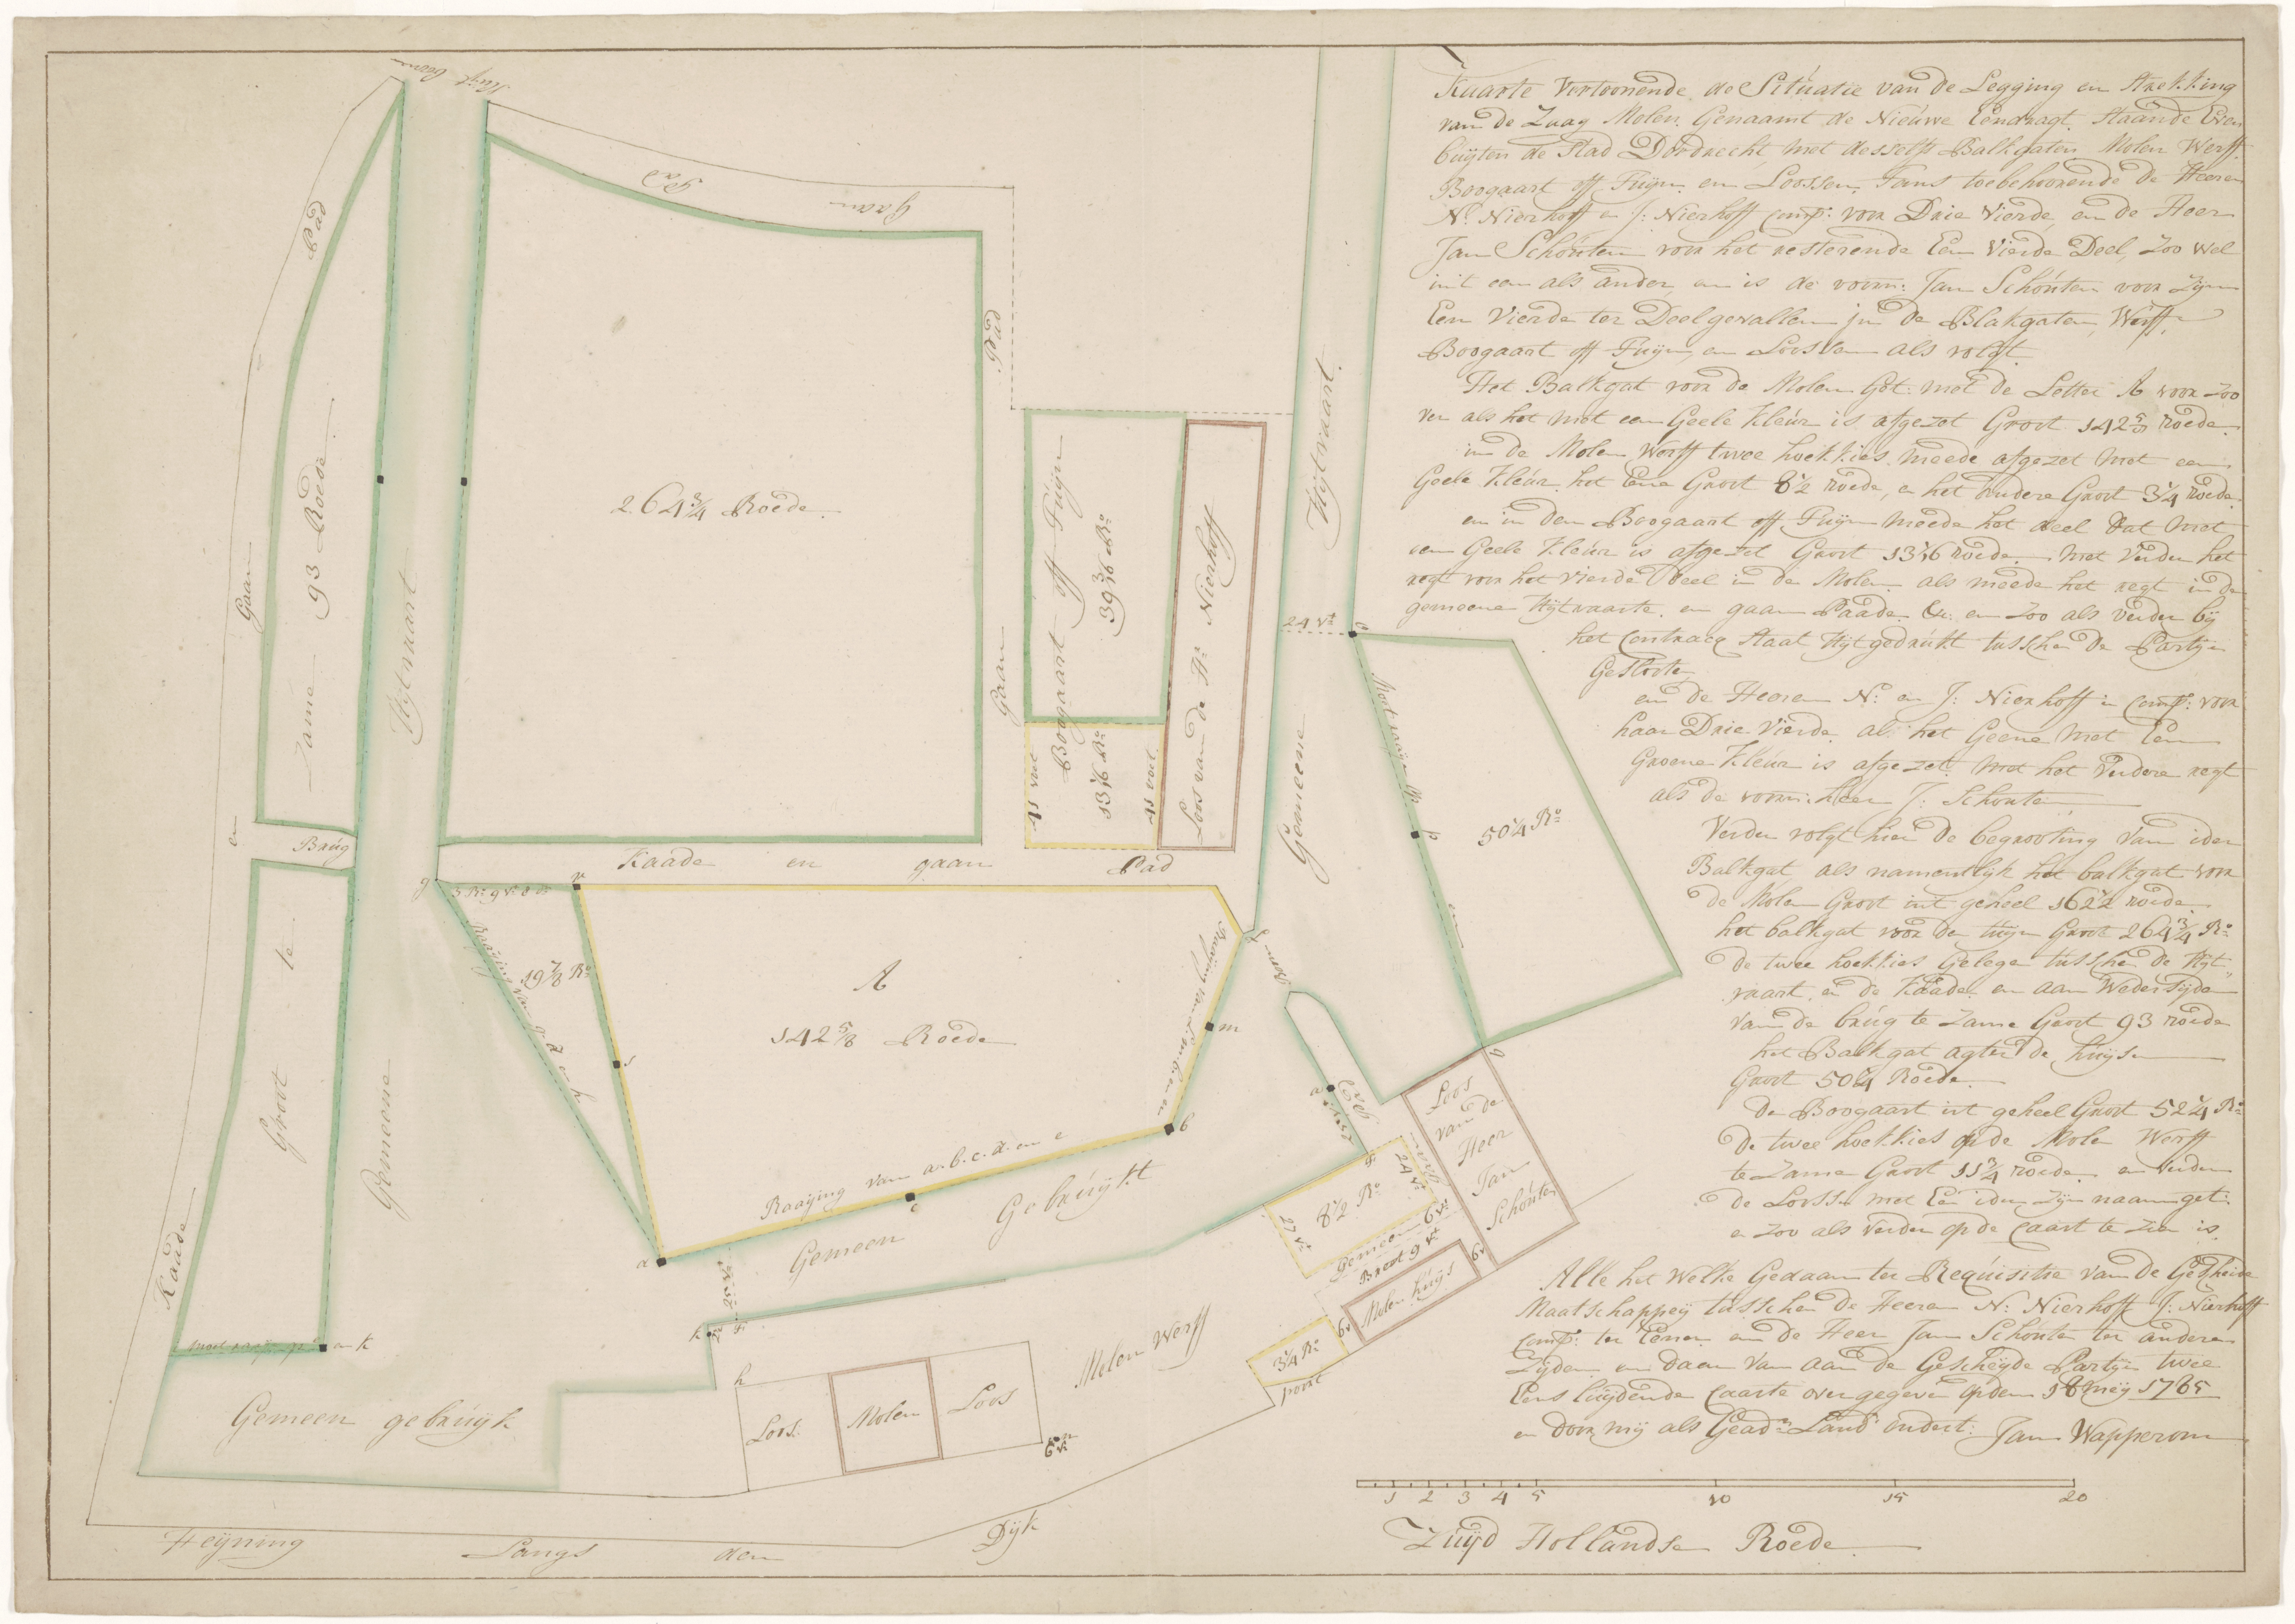 Kaarte Vertoonende de Sitúatie van de Legging en Strekking
van de Zaag Molen Genaamt de Nieúwe Eendragt Staande Even
búÿten de Stad Dordrecht, met desselfs Balkgaten Molen Werff
Boogaart off Túÿn en Loossen, Tans toebehoorende de Heeren
N: Nierhoff en J: Nierhoff Comp: voor Drie Vierde, en de Heer
Jan Schoúten voor het resterende Een Vierde Deel, Zoo wel
int een als ander, en is de voorn: Jan Schoúten voor Zijn
Een Vierde ter Deel gevallen in de Blakgaten, Werff,
Boogaart off Túÿn, en Loossen als volgt.
Het Balkgat voor de Molen Get: met de Letter A voor zoo
ver als het met een Geele Kleúr is afgezet Groot 142 5/8 Roede
in de Molen Werff twee hoekkies meede afgezet met een
Geele Kleúr, het Eene Groot 8 1/2 roede, en het andere Groot 3 1/4 roede
en in den Boogaart off Túÿn meede het deel dat met
een Geele Kleúr is afgezet Groot 13 1/16 roede met Verder het
regt voor het vierde Deel in de Molen als meede het regt in de
gemeene Uÿtvaarte en gaan Paade &c: en zoo als verder bÿ
het Contract Staat Uÿtgedrúkt tússchen de Partijen
Geslooten
en de Heeren N: en J: Nierhoff in Comp: voor
haar Drie Vierde al het Geene met Een
Groene Kleúr is afgezet met het Verdere regt
als de voorn: heer J: Schouten
Verder volgt hier de begrooting van ider
Balkgat als namentlijk het balkgat voor
de Molen Groot int geheel 162 1/2 roede
het balkgat voor den túÿn Groot 264 3/4 Ro
De twee hoekkies Gelege tússche de Uÿt
vaart, en de Kaade en aan Weder Sÿde
van de brúg te Zame Groot 93 roede
het Balkgat agter de húÿse
Groot 50 1/4 Roede
De Boogaart int geheel Groot 52 1/4 Ro
De twee hoekkies op de Mole Werff
te Zame Groot 11 3/4 roede en verder
de Loosse met Een ider Zijn naam get:
en zoo als verder op de Caart te Zien is
Alle het Welke Gedaan ter Reqúisitie van de Gescheide
Maatschappeÿ tússchen de Heeren N: Nierhoff J: Nierhoff
Comp: ter Eener en de Heer Jan Schoúten ter andere
Zijden en daar van aan de Gescheÿde Partije twee
Eens lúÿdende Caarte over gegeven op den 18 meÿ 1785
en door mij als Geadm: Land
Jan Wapperom
1 2 3 4 5 10 15 20
Zúÿd Hollandse Roede
Gaan Pad
Gaan Pad
Pad
Gaan
en
Kaade
Zame 93 Roede
Groot te
Brúg
Uÿtvaart
Gemeene
264 3/4 Roede
Pad
Gaan
Boogaart off Túÿn
39 3/16 Ro
13 1/16 Ro
41 voet
41 voet
Loos van de Hr Nierhoff
Uÿtvaart
Gemeene
24 vt
Kaade en gaan Pad
g
3 Ro 9 vt
r
19 7/8 Ro
s
A
142 5/8 Roede
f
m
b
c
a
Raaijing van a. b. c. d. en e
Gemeen Gebrúÿkt
50 1/4 Ro
p
q
Loos
van de
Heer
Jan
Schoúten
8 1/2 Ro
27 vt
24 vt
Gemeen
6 vt
Breet 9 vt
Molen húÿs
6 v
6 v
3 1/4 Ro
poort
Molen Werff
25 vt
k
h
Loos
Molen
Loos
6 vt
Gemeen gebrúÿk
Heÿning Langs den Dÿk